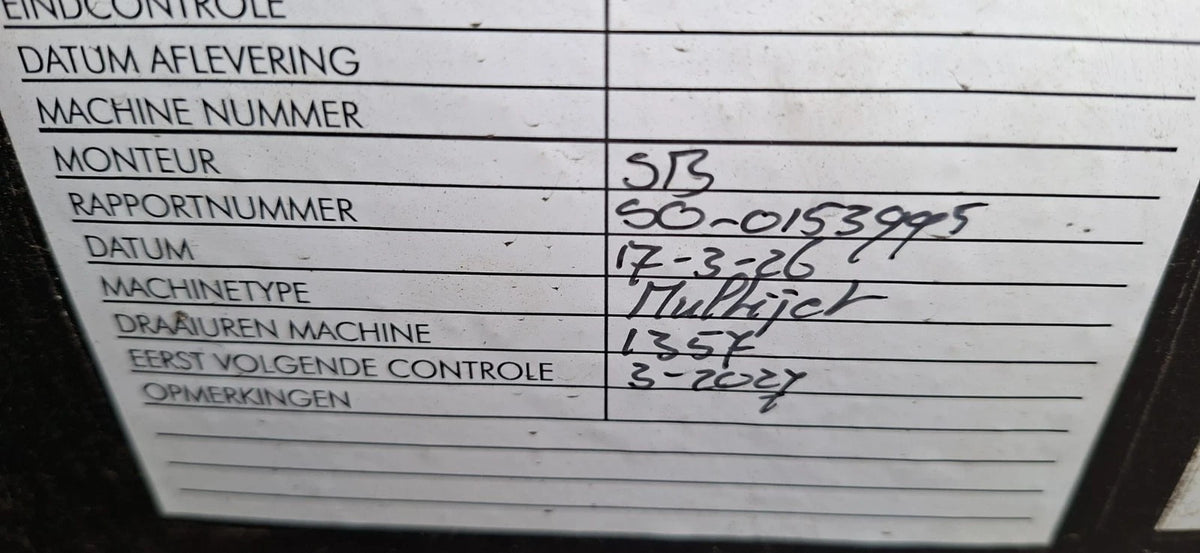 EINDCONTROLE
DATUM AFLEVERING
MACHINE NUMMER
MONTEUR SB
RAPPORTNUMMER SO-01539995
DATUM 17-3-26
MACHINETYPE Multijet
DRAAIUREN MACHINE 1357
EERST VOLGENDE CONTROLE 3-2027
OPMERKINGEN